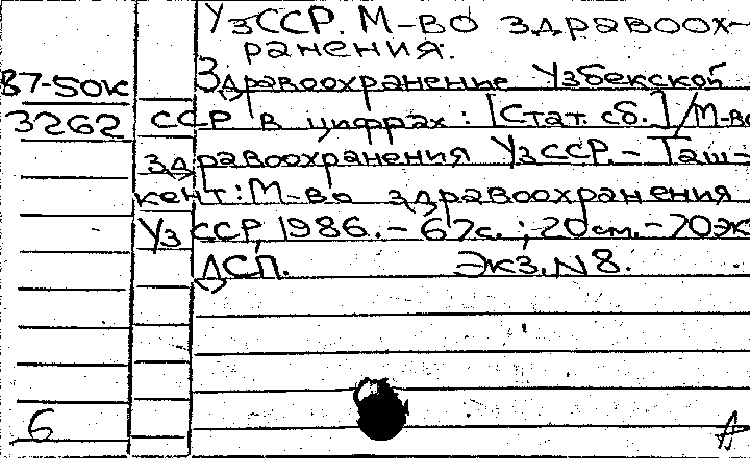 УзССР. М-во здравоох-
ранения.
87-50к Здравоохранение Узбекской
3262 ССР в цифрах: [Стат. сб.] / М-во
здравоохранения УзССР. - Таш-
кент: М-во здравоохранения
УзССР, 1986. - 67с.; 20см. - 70эк
ДСП. Экз. N 8.
6 А